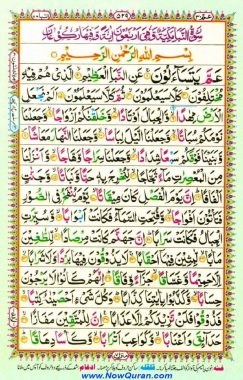 عَمَّ يَتَسَآءَلُوْنَ عَنِ النَّبَاِ الْعَظِيْمِ الَّذِيْ هُمْ فِيْهِ
مُخْتَلِفُوْنَ كَلَّا سَيَعْلَمُوْنَ ثُمَّ كَلَّا سَيَعْلَمُوْنَ اَلَمْ نَجْعَلِ
الْاَرْضَ مِهٰدًا وَّالْجِبَالَ اَوْتَادًا وَّخَلَقْنٰكُمْ اَزْوَاجًا وَّجَعَلْنَا
نَوْمَكُمْ سُبَاتًا وَّجَعَلْنَا الَّيْلَ لِبَاسًا وَّجَعَلْنَا النَّهَارَ مَعَاشًا
وَّبَنَيْنَا فَوْقَكُمْ سَبْعًا شِدَادًا وَّجَعَلْنَا سِرَاجًا وَّهَّاجًا وَّاَنْزَلْنَا
مِنَ الْمُعْصِرٰتِ مَآءً ثَجَّاجًا لِّنُخْرِجَ بِهٖ حَبًّا وَّنَبَاتًا وَّجَنّٰتٍ
اَلْفَافًا اِنَّ يَوْمَ الْفَصْلِ كَانَ مِيْقَاتًا يَّوْمَ يُنْفَخُ فِي الصُّوْرِ
فَتَاْتُوْنَ اَفْوَاجًا وَّفُتِحَتِ السَّمَآءُ فَكَانَتْ اَبْوَابًا وَّسُيِّرَتِ
الْجِبَالُ فَكَانَتْ سَرَابًا اِنَّ جَهَنَّمَ كَانَتْ مِرْصَادًا لِّلطَّاغِيْنَ
مَاٰبًا لّٰبِثِيْنَ فِيْهَآ اَحْقَابًا لَا يَذُوْقُوْنَ فِيْهَا بَرْدًا وَّلَا شَرَابًا
اِلَّا حَمِيْمًا وَّغَسَّاقًا جَزَآءً وِّفَاقًا اِنَّهُمْ كَانُوْا لَا يَرْجُوْنَ
حِسَابًا وَّكَذَّبُوْا بِاٰيٰتِنَا كِذَّابًا وَكُلَّ شَيْءٍ اَحْصَيْنٰهُ كِتٰبًا
فَذُوْقُوْا فَلَنْ نَّزِيْدَكُمْ اِلَّا عَذَابًا اِنَّ لِلْمُتَّقِيْنَ مَفَازًا
حَدَآئِقَ وَاَعْنَابًا وَّكَوَاعِبَ اَتْرَابًا وَّكَاْسًا دِهَاقًا
www.NowQuran.com